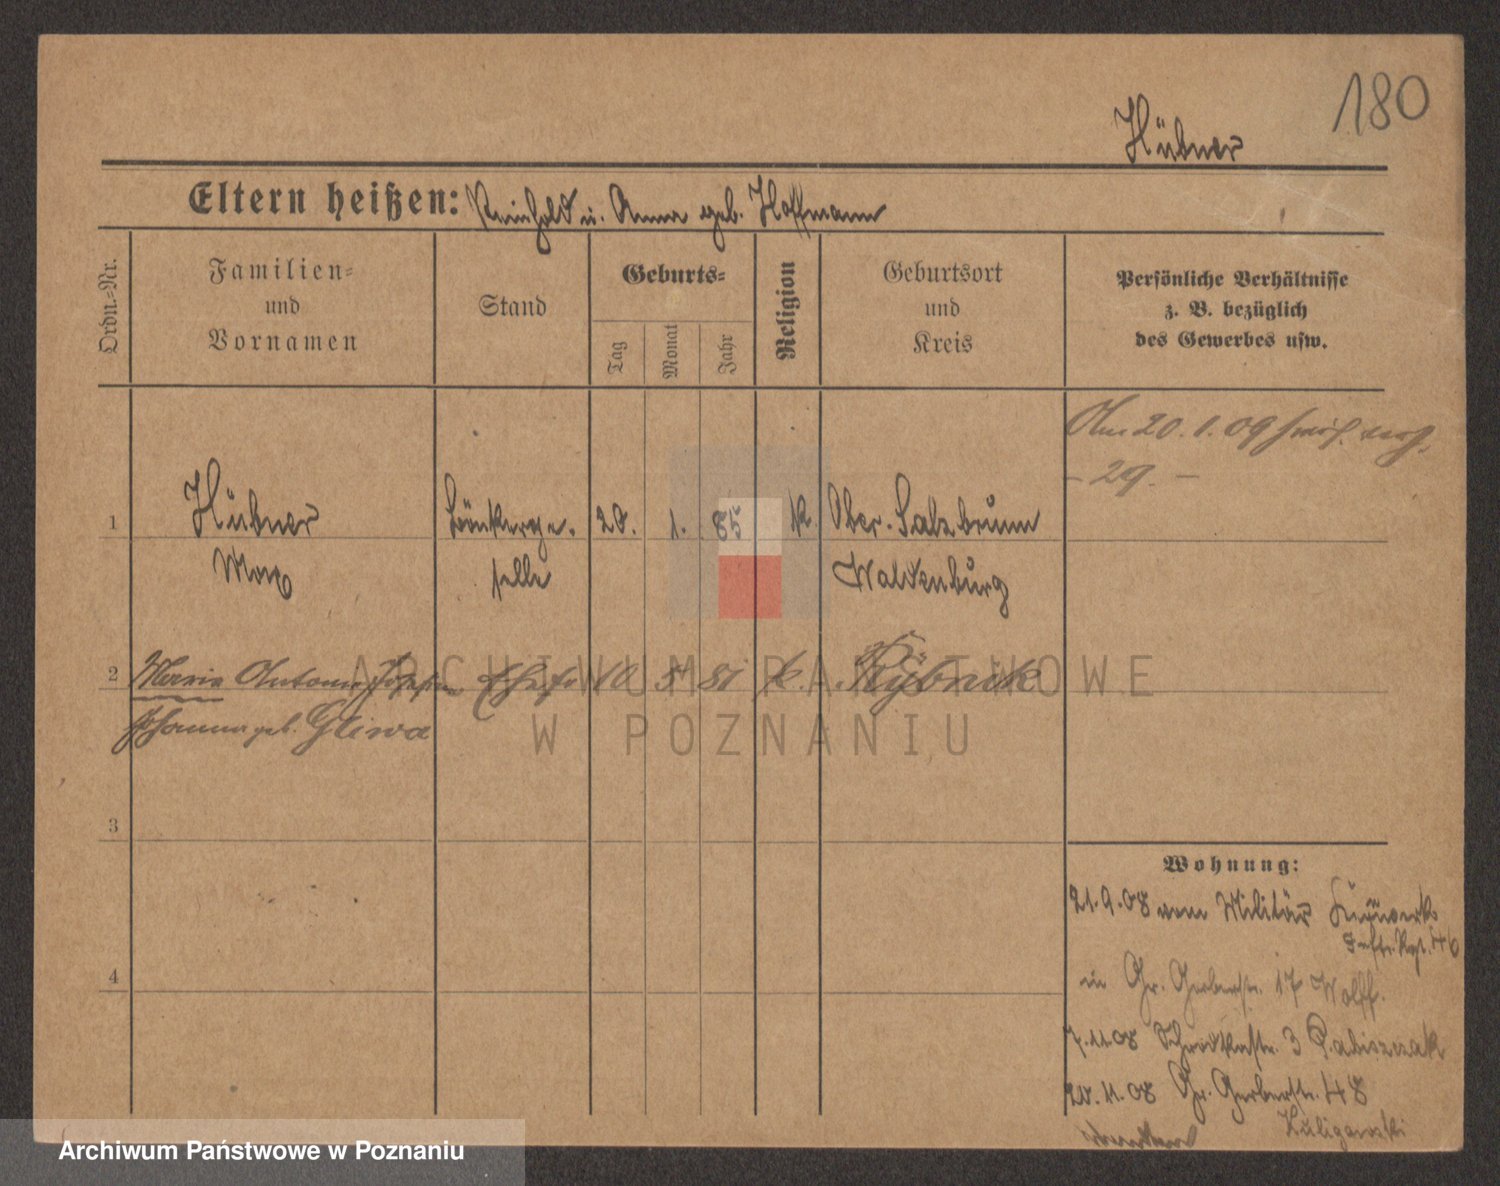 180
Hübner
Eltern heißen: Reinhold u. Anna geb. Hoffmann
Ordn.-Nr.
Familien- und Vornamen
Stand
Geburts-
Tag
Monat
Jahr
Religion
Geburtsort und Kreis
Persönliche Verhältnisse z. B. bezüglich des Gewerbes usw.
Am 20.1.09
- 29. -
1 Hübner 20. 1. 85 k. Ober-Salzbrunn
Max selle Waldenburg
2 Maria Antonie Ehefr 10 5 81 k. Rybnik
Johanna geb. Gliwa
3
4
Wohnung:
21.9.08 vom Militär
Inftr. Rgt. 46
in Gr. Gerberstr. 17 Wolff.
7.11.08 Schrodkastr. 3 Pabiszczak
20.11.08 Gr. Gerberstr. 48
Kuligowski
ARCHIWUM PAŃSTWOWE
W POZNANIU
Archiwum Państwowe w Poznaniu